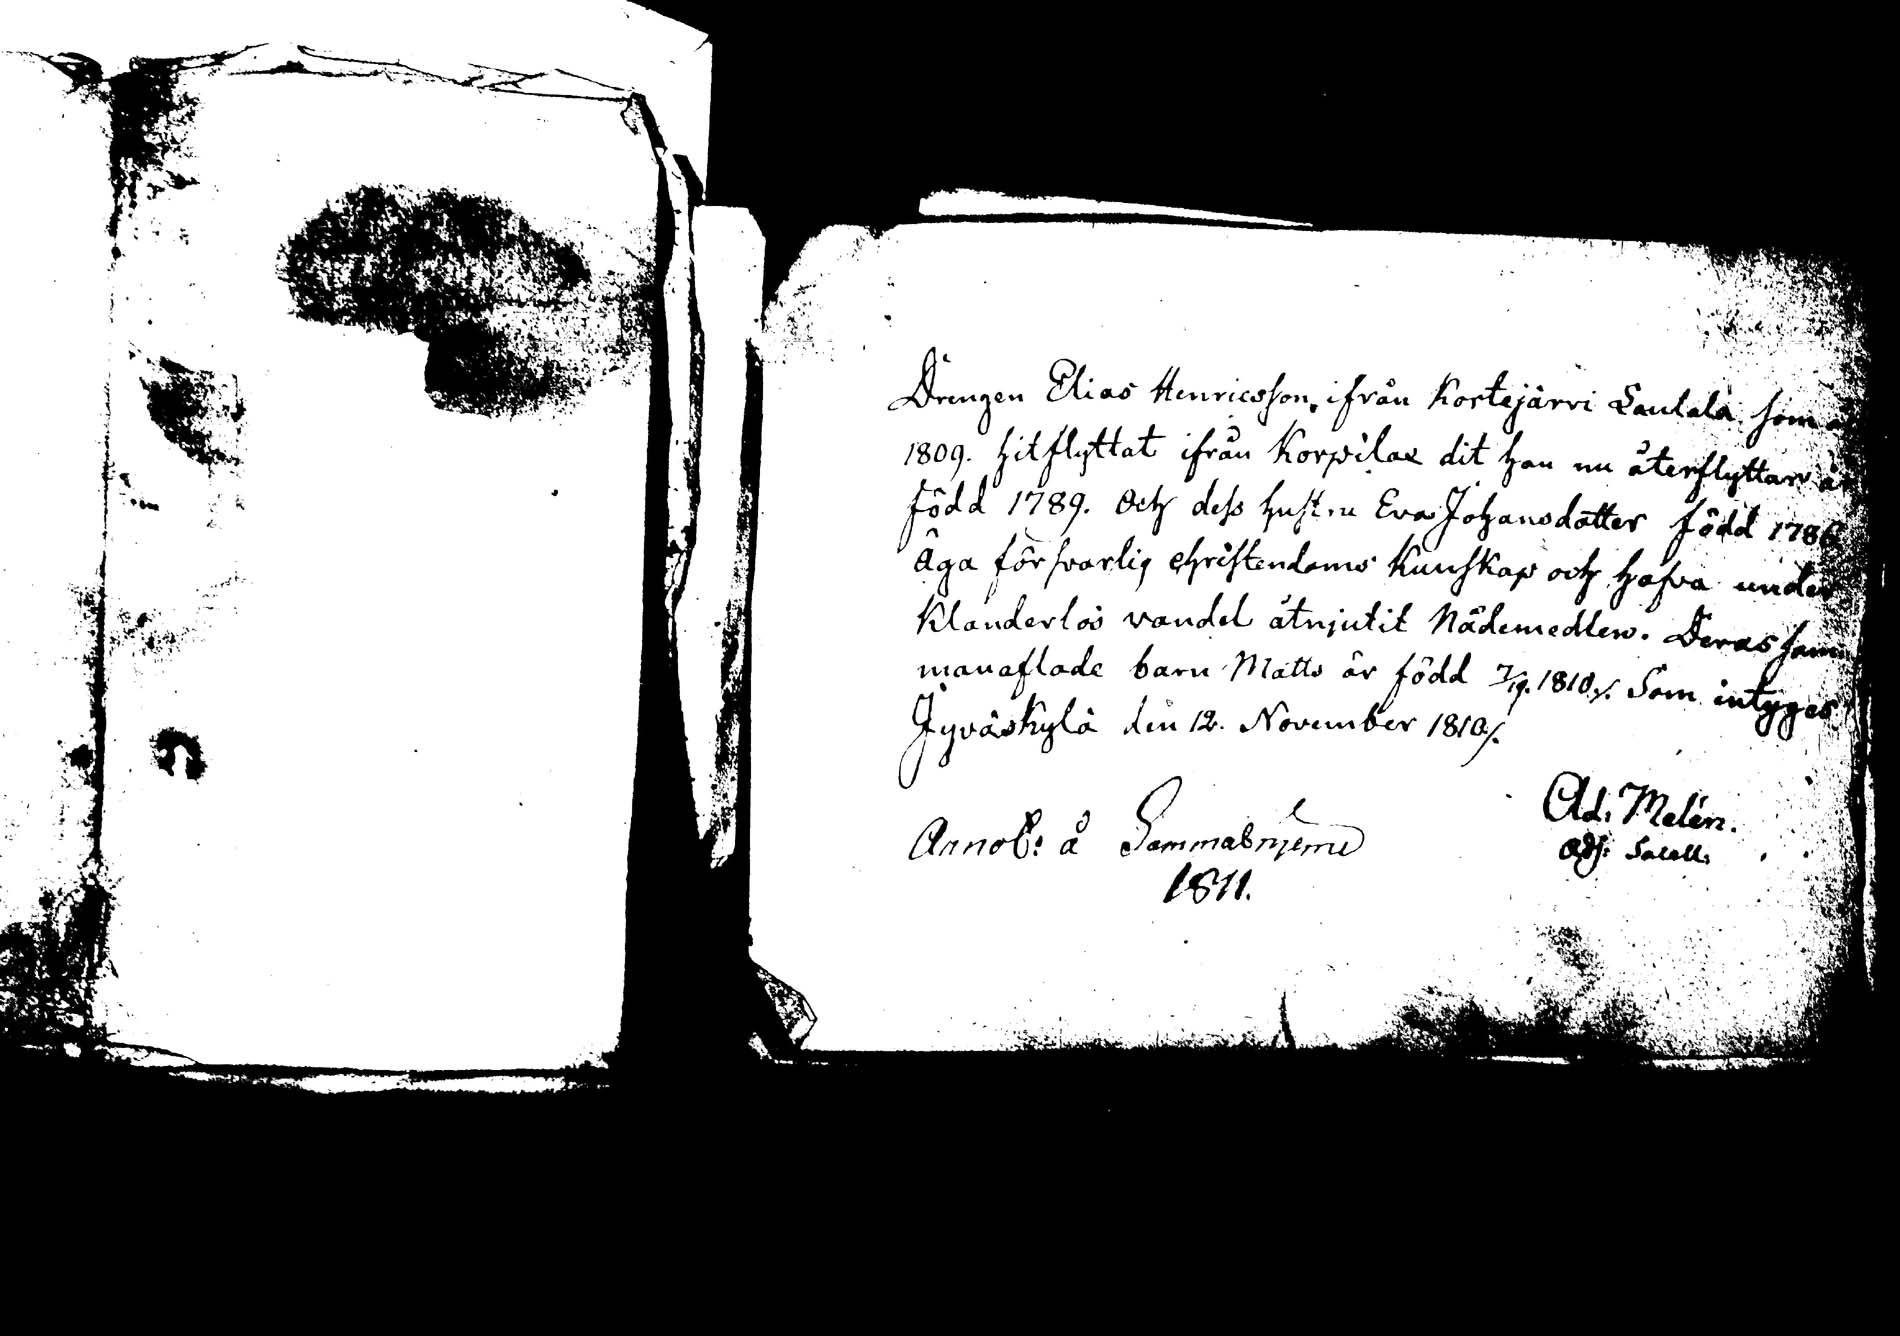 Drengen Elias Henricsson, ifrån Kortejärvi Laulala som
1809. hitflyttat ifrån Korpilax dit han nu återflyttar är
född 1789. Och dess hustru Eva Johansdotter född 1786
äga försvarlig christendoms kunskap och hafva under
klanderlös vandel åtnjutit Nådemedlen. Deras sam
manaflade barn Matts är född 7/19. 1810./. Som intyges
Jyväskylä den 12. November 1810./.
Ad: Melén.
Adj: Sacell:
Annot: å
1811.